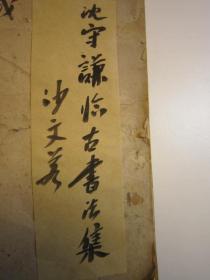 沈守謙臨古書法集
沙文若